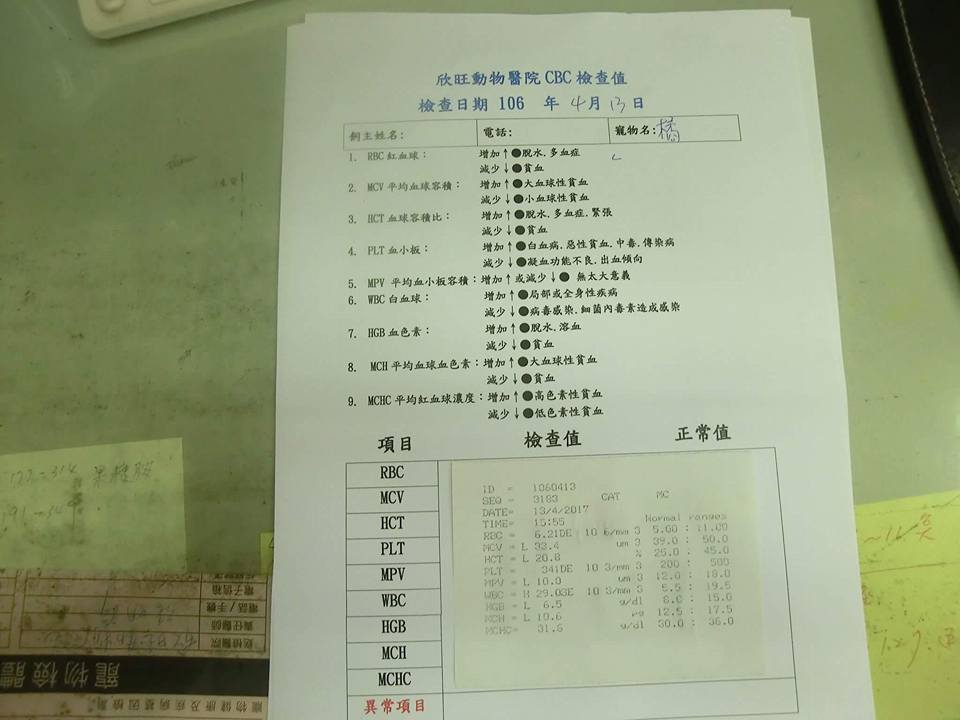 欣旺動物醫院 CBC 檢查值
檢查日期 106 年 4月 13 日
飼主姓名: 電話: 寵物名: 橘
1. RBC 紅血球: 增加↑●脫水.多血症
減少↓●貧血
2. MCV 平均血球容積: 增加↑●大血球性貧血
減少↓●小血球性貧血
3. HCT 血球容積比: 增加↑●脫水.多血症.緊張
減少↓●貧血
4. PLT 血小板: 增加↑●白血病.惡性貧血.中毒.傳染病
減少↓●凝血功能不良.出血傾向
5. MPV 平均血小板容積:增加↑或減少↓● 無太大意義
6. WBC 白血球: 增加↑●局部或全身性疾病
減少↓●病毒感染.細菌內毒素造成感染
7. HGB 血色素: 增加↑●脫水.溶血
減少↓●貧血
8. MCH 平均血球血色素:增加↑●大血球性貧血
減少↓●貧血
9. MCHC 平均紅血球濃度:增加↑●高色素性貧血
減少↓●低色素性貧血
項目 檢查值 正常值
RBC
MCV
HCT
PLT
MPV
WBC
HGB
MCH
MCHC
異常項目
ID = 1060413
SEQ = 3183 CAT MC
DATE= 13/4/2017
TIME= 15:55 Normal ranges
RBC = 6.21DE 10 6/mm 3 5.00 : 11.00
MCV = L 33.4 um 3 39.0 : 50.0
HCT = L 20.8 % 25.0 : 45.0
PLT = 341DE 10 3/mm 3 200 : 500
MPV = L 10.0 um 3 12.0 : 18.0
WBC = H 29.03E 10 3/mm 3 5.5 : 19.5
HGB = L 6.5 g/dl 8.0 : 15.0
MCH = L 10.6 pg 12.5 : 17.5
MCHC= 31.6 g/dl 30.0 : 36.0
電子信箱
電話/手機
責任醫師
送檢醫院
寵物檢體